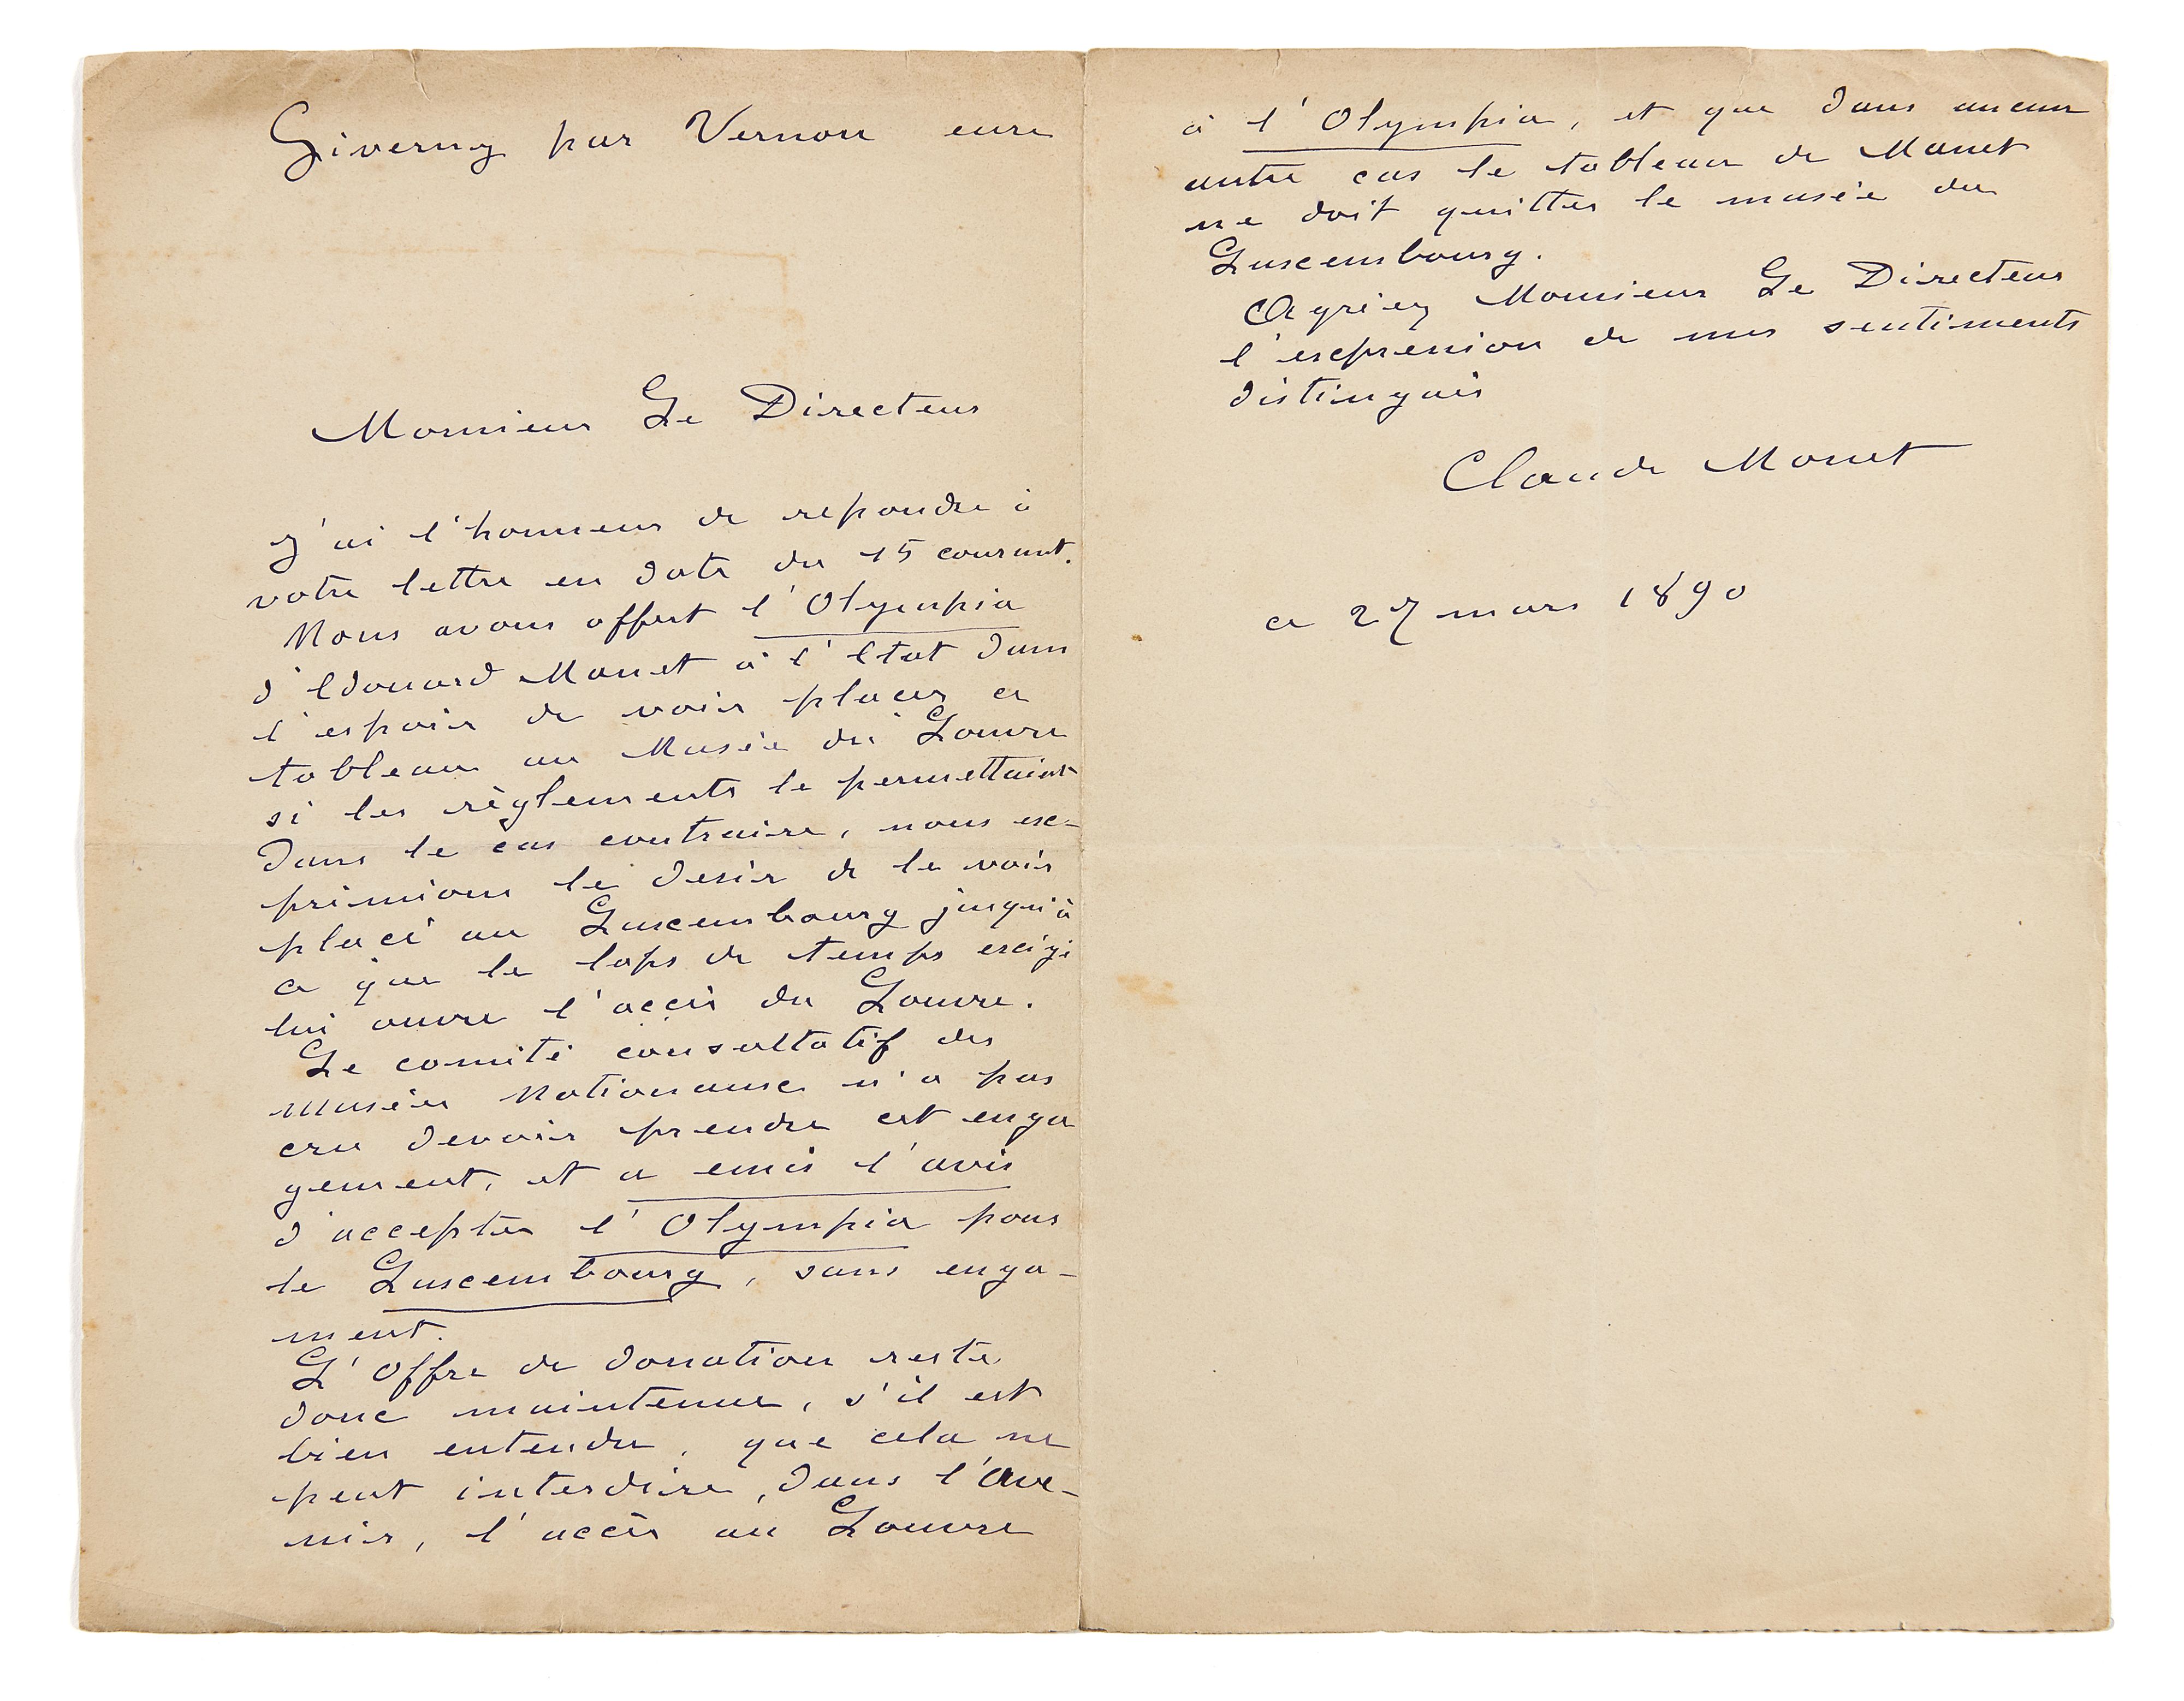 Giverny par Vernon eure
Monsieur Le Directeur
J'ai l'honneur de repondre à
votre lettre en date du 15 courant.
Nous avons offert l'Olympia
d'Edouard Manet à l'Etat dans
l'espoir de voir placer ce
tableau au Musée du Louvre
si les règlements le permettaient
Dans le cas contraire, nous ex-
primions le desir de le voir
placé au Luxembourg jusqu'à
ce que le laps de temps exigé
lui ouvre l'accès du Louvre.
Le comité consultatif des
Musées Nationaux n'a pas
cru devoir prendre cet enga
gement, et a emis l'avis
d'accepter l'Olympia pour
le Luxembourg, sans enga-
ment.
L'Offre de donation reste
donc maintenue, s'il est
bien entendu, que cela ne
peut interdire, dans l'ave-
nir, l'accès au Louvre
à l'Olympia, et que dans aucun
autre cas le tableau de Manet
ne doit quitter le musée du
Luxembourg.
Agréez Monsieur Le Directeur
l'expression de mes sentiments
distingués
Claude Monet
ce 27 mars 1890